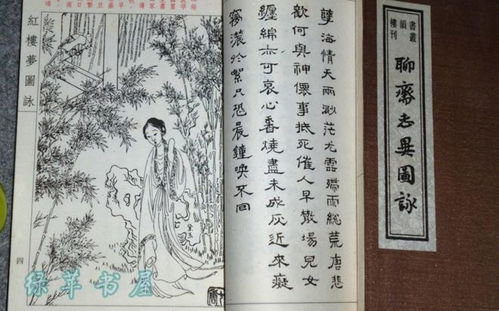 書韻樓叢刊
聊齋志異圖詠
孽海情天兩渺茫尤雲殢雨總荒唐悲
歡何與神僊事抵死催人早散場兒女
纏綿亦可哀心香燒盡未成灰近來癡
夢濃於絮只恐晨鐘喚不回
紅樓夢圖詠
四
书屋